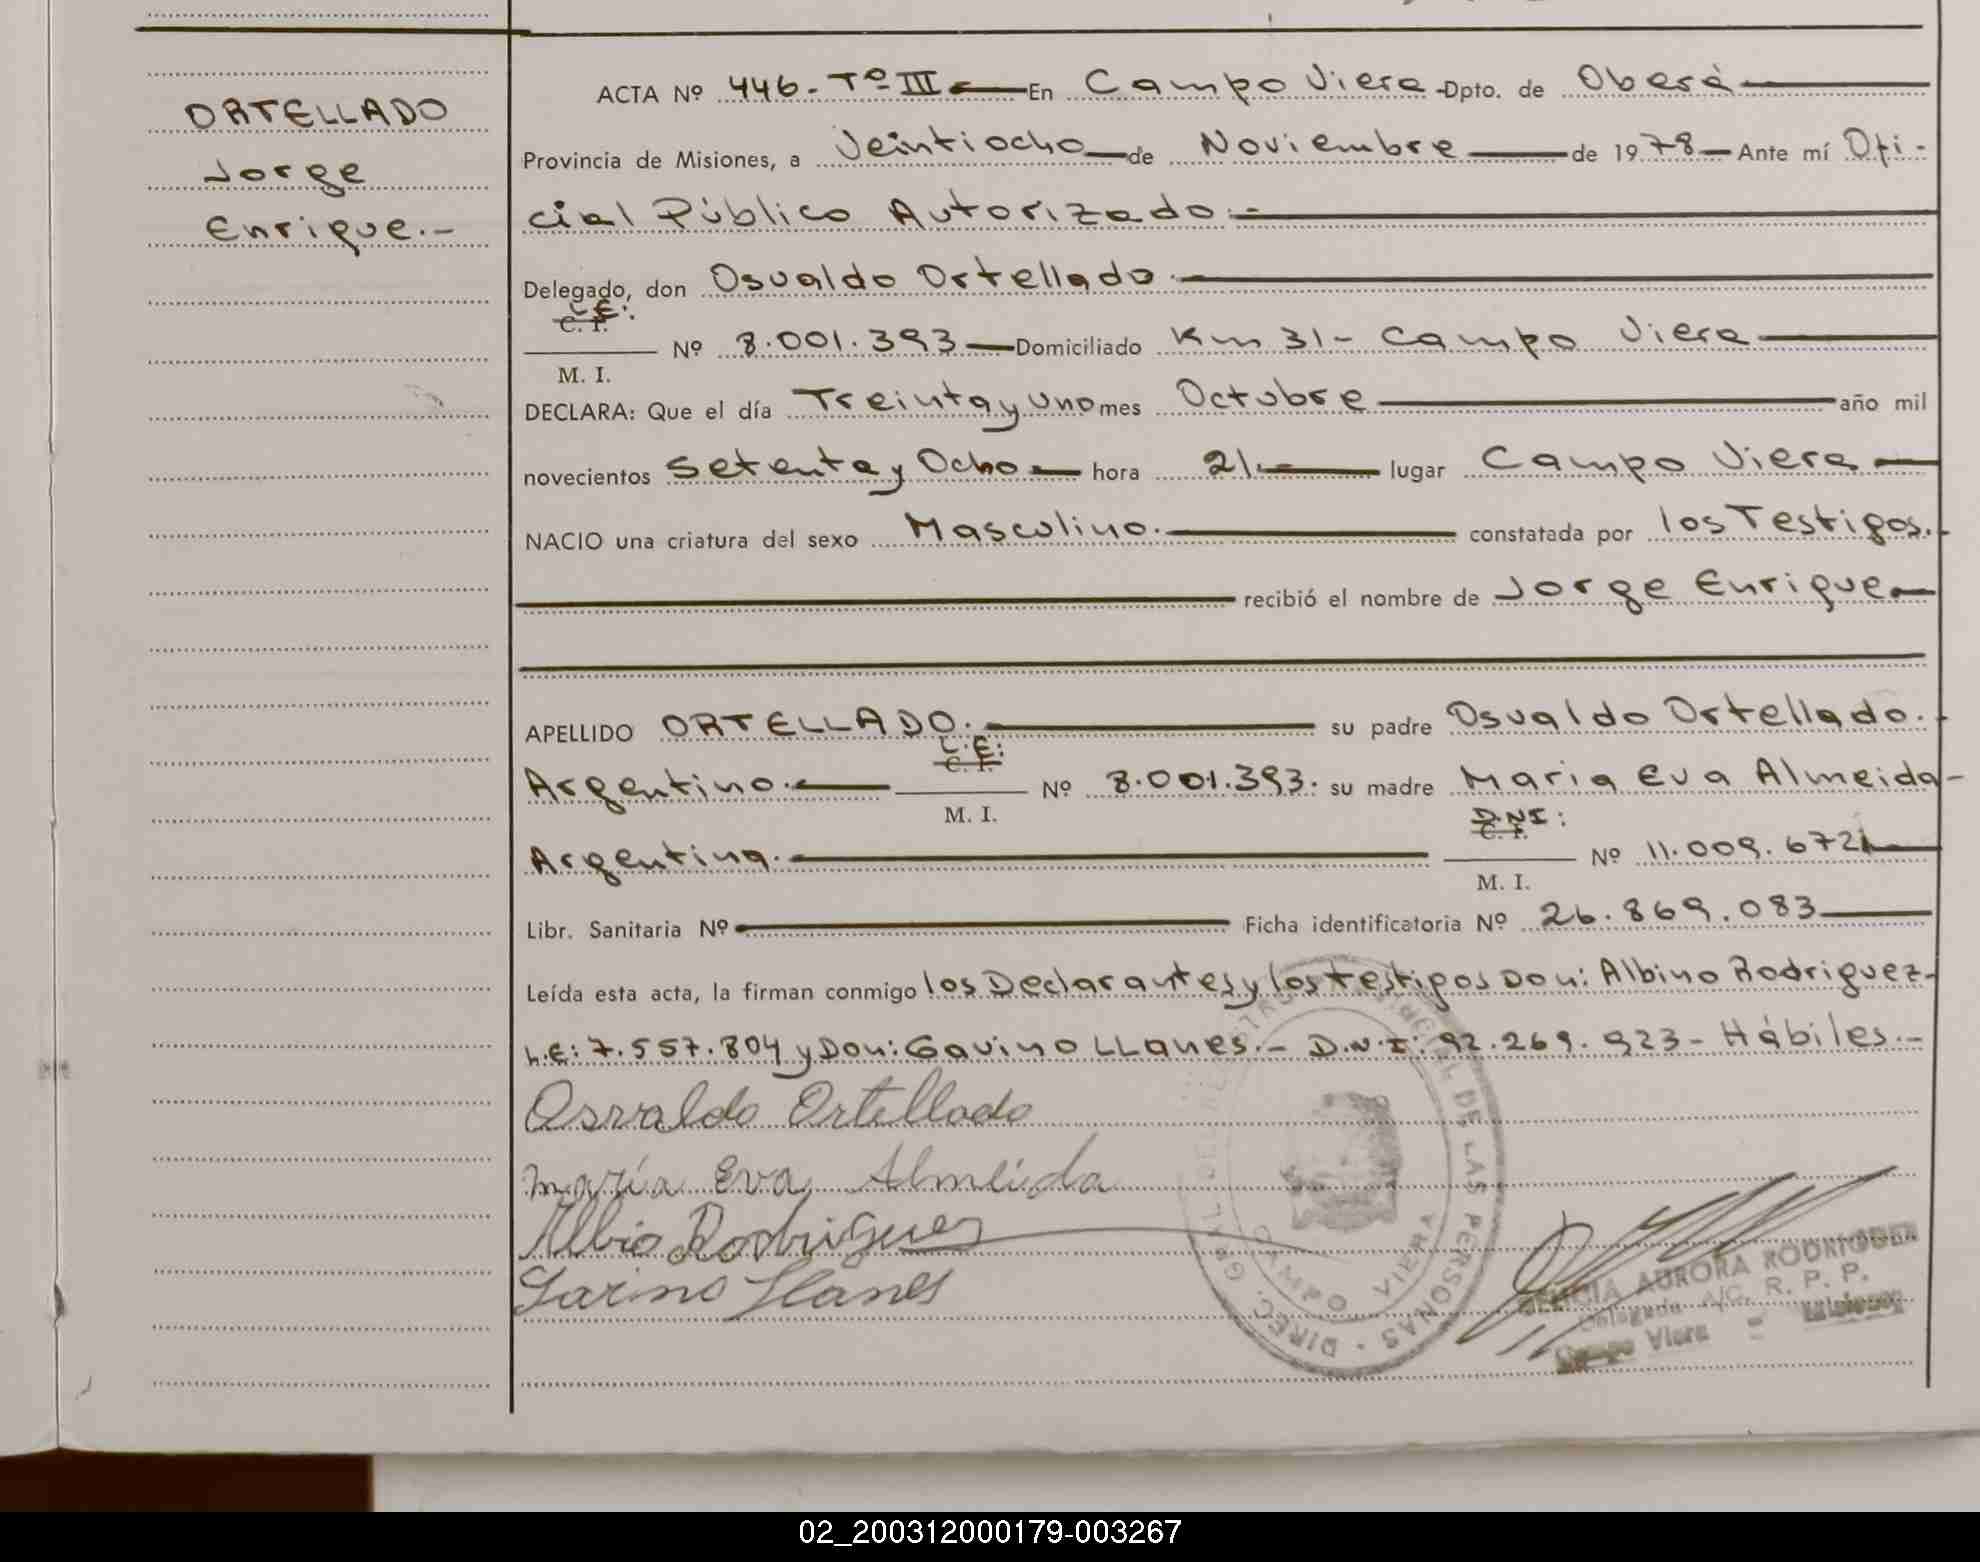 ORTELLADO
Jorge
Enrique.-
ACTA Nº 446- Tº III En Campo Viera Dpto. de Oberá
Provincia de Misiones, a Veintiocho de Noviembre de 1978 Ante mí Ofi-
cial Público Autorizado.-
Delegado, don Osvaldo Ortellado.
L.E:
C. I.
Nº 8.001.393 Domiciliado Km 31- Campo Viera
M. I.
DECLARA: Que el día Treinta y uno mes Octubre año mil
novecientos Setenta y Ocho hora 21.- lugar Campo Viera
NACIO una criatura del sexo Masculino. constatada por los Testigos.-
recibió el nombre de Jorge Enrique
APELLIDO ORTELLADO. su padre Osvaldo Ortellado.-
L.E:
C. I.
Argentino. Nº 8.001.393. su madre Maria Eva Almeida-
M. I.
D.N.I:
C. I.
Argentina. Nº 11.009.672
M. I.
Libr. Sanitaria Nº Ficha identificatoria Nº 26.869.083
Leída esta acta, la firman conmigo los Declarantes y los testigos Don: Albino Rodriguez-
L.E: 7.557.804 y Don: Gavino LLanes.- D.N.I: 92.269.923- Hábiles.-
Osvaldo Ortellado
maría Eva Almeida
Albio Rodriguez
Llanes
DIREC. GRAL. DEL REGISTRO DE LAS PERSONAS
CAMPO VIERA
AURORA RODRIGUEZ
Delegada A/C. R. P. P.
Campo Viera - Misiones
02_200312000179-003267